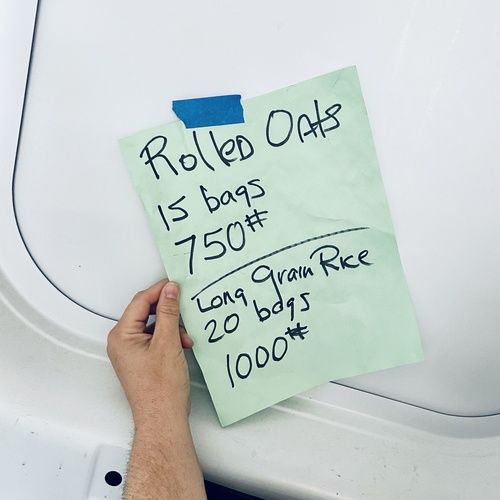 Rolled Oats
15 bags
750#
Long Grain Rice
20 bags
1000#